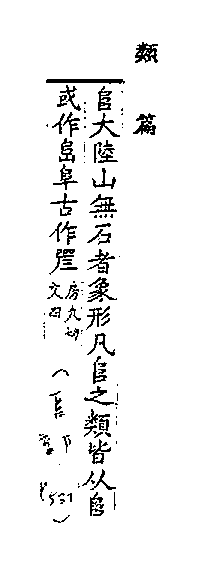 類篇
𨸏大陸山無石者象形凡𨸏之類皆从𨸏
或作峊阜古作
房九切
文四
(𨸏部
P531)